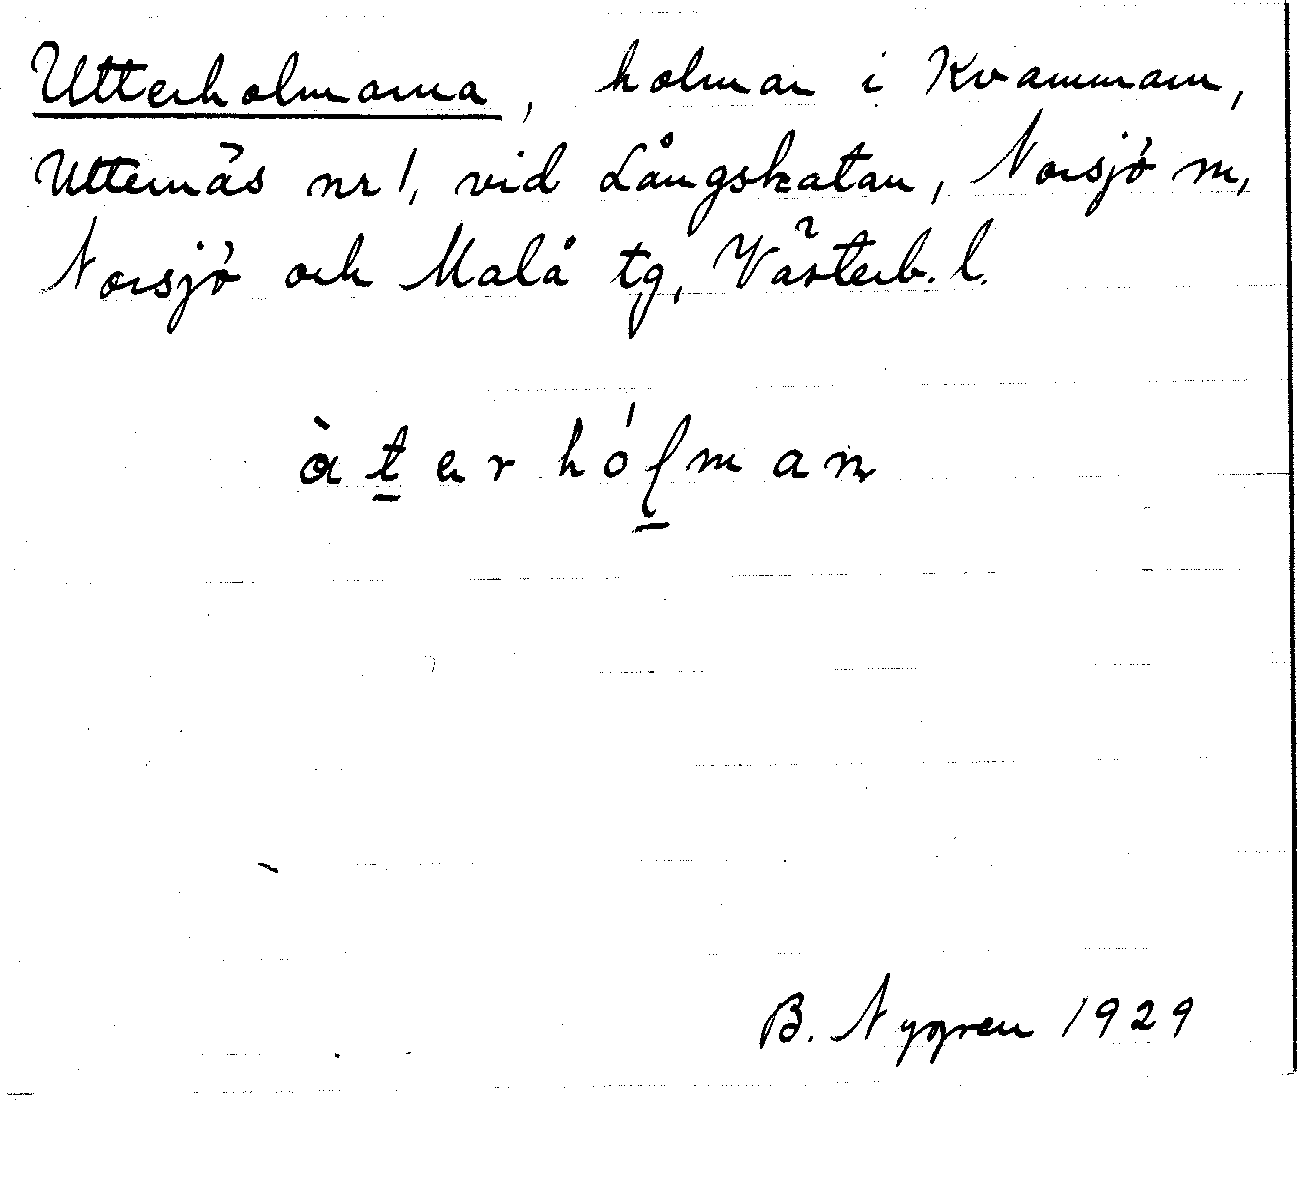 Utterholmarna, holmar i Kvammarn,
Utternäs nr 1, vid Långskatan, Norsjö sn,
Norsjö och Malå tg, Västerb. l.
àt̠erhól̠man
B. Nygren 1929